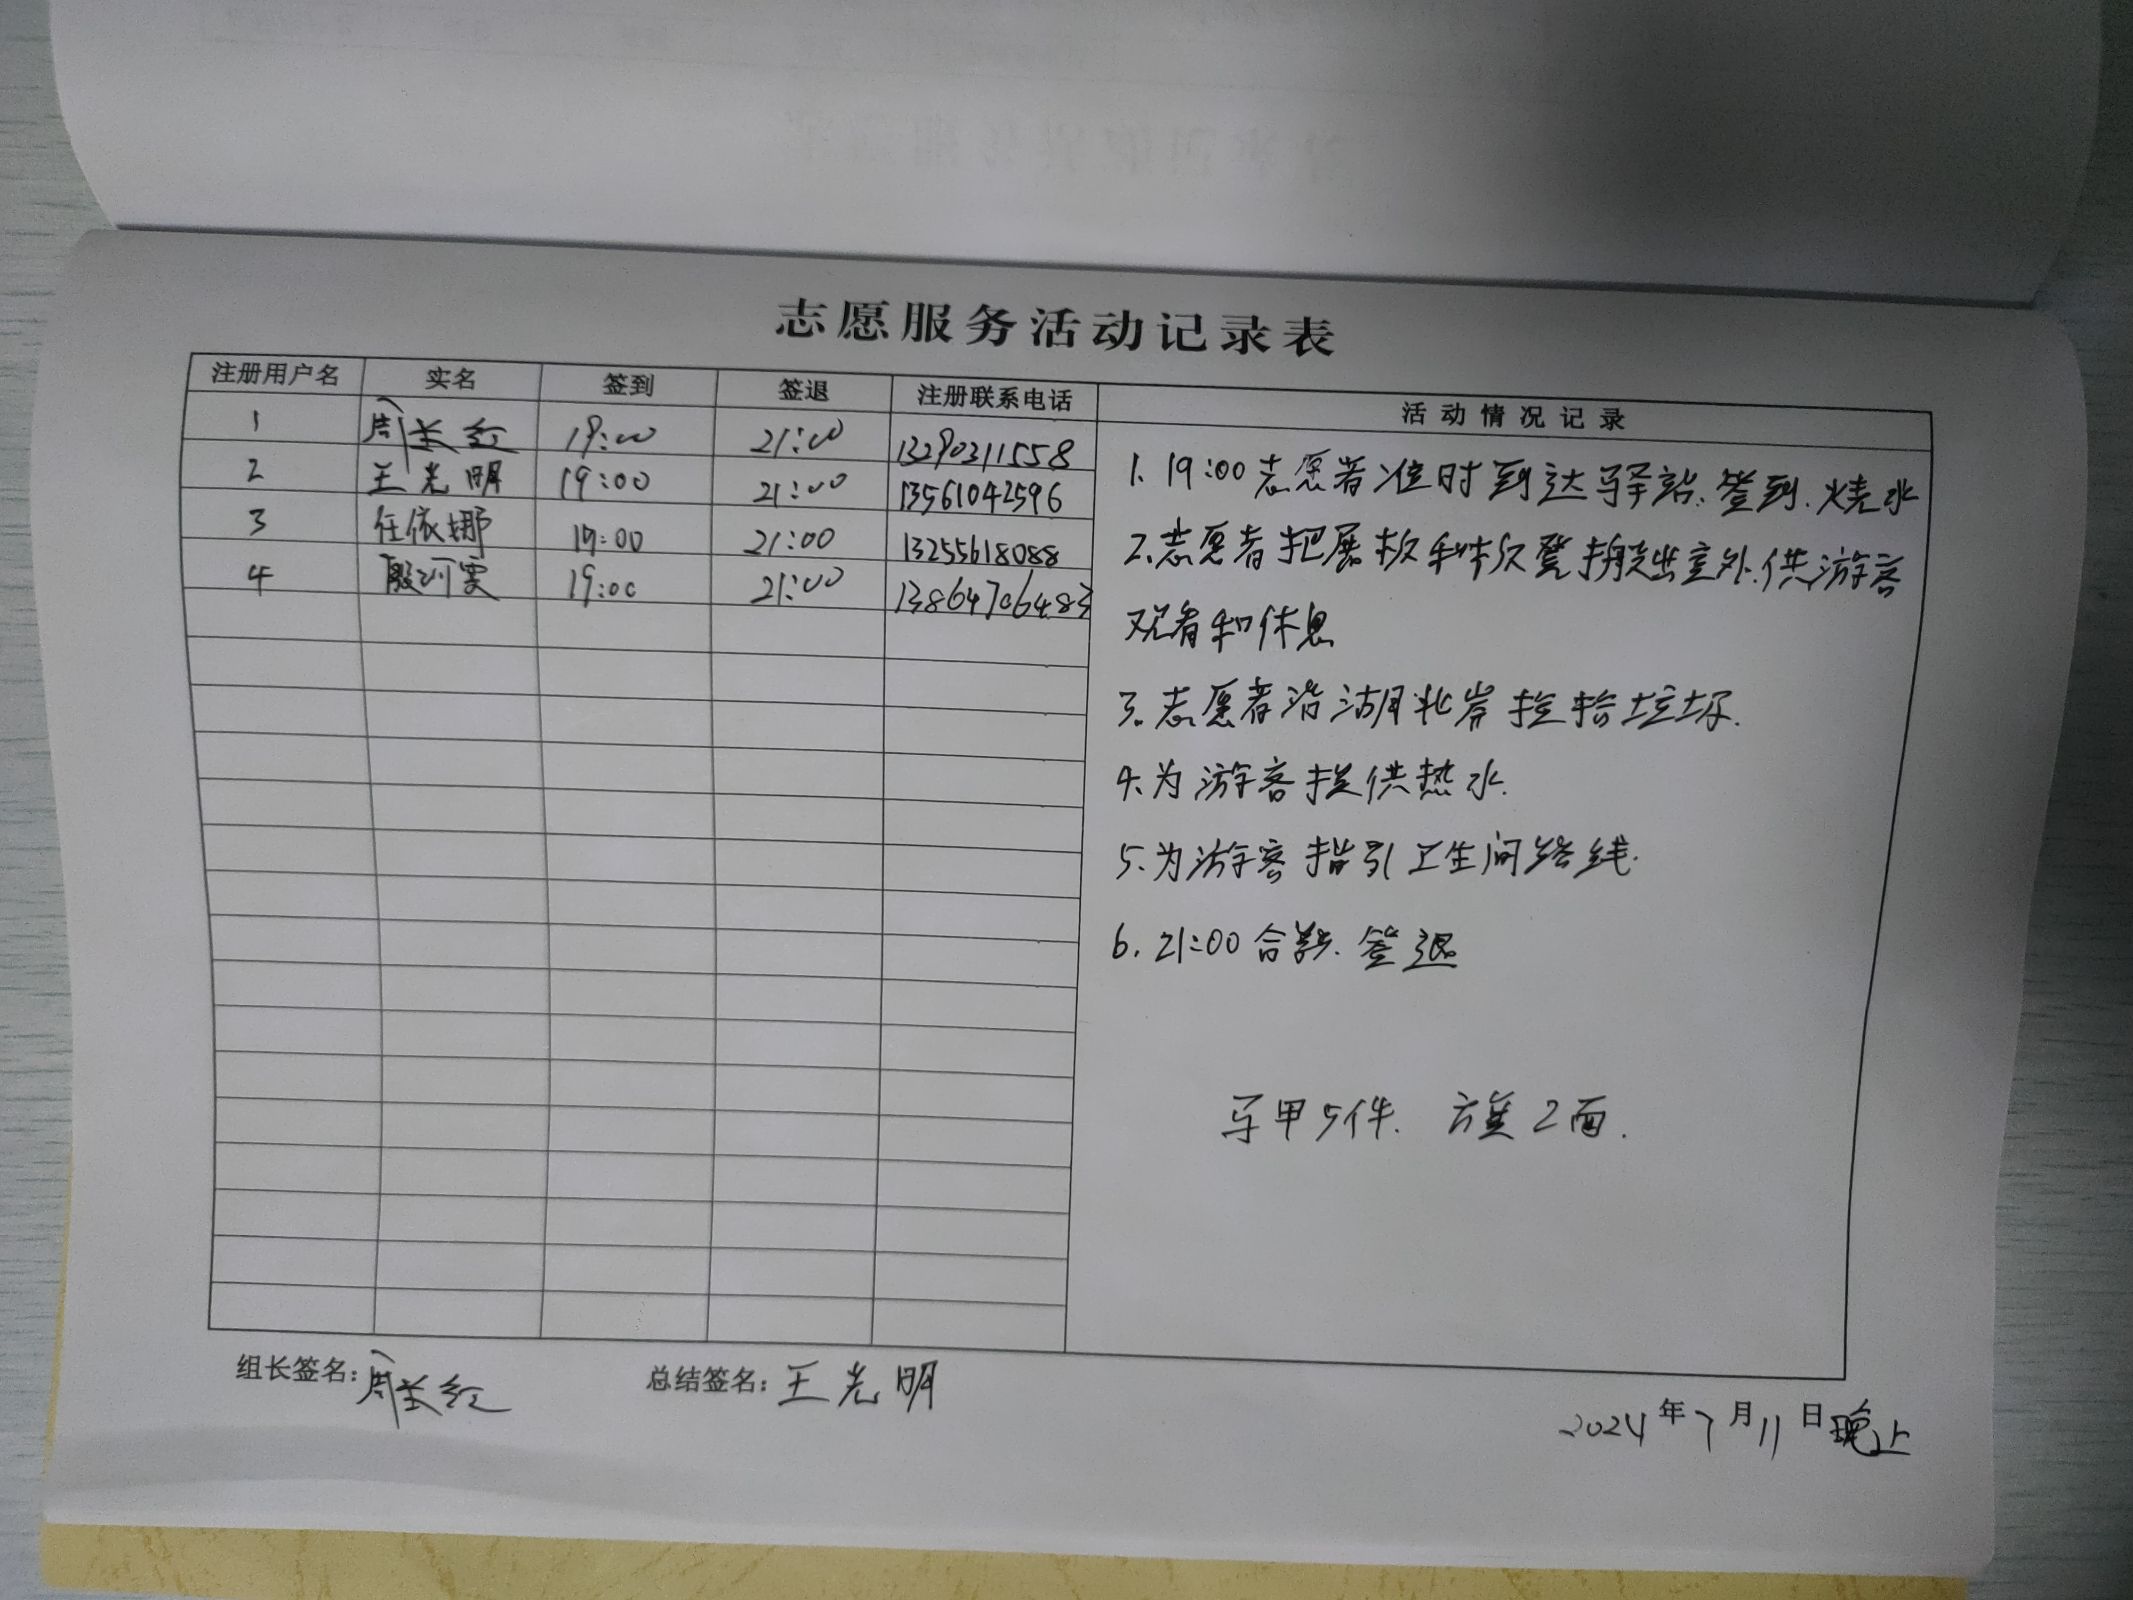 志愿服务活动记录表
注册用户名 实名 签到 签退 注册联系电话 活动情况记录
1 周长红 19:00 21:00 13290311558
2 王光明 19:00 21:00 13561042596
3 任依娜 19:00 21:00 13255618088
4 19:00 21:00 13864706483
1. 19:00志愿者准时到达驿站.签到.烧水
2.志愿者把展板和板凳搬出室外.供游客
观看和休息
3.志愿者沿湖北岸捡拾垃圾.
4.为游客提供热水.
5.为游客指引卫生间路线.
6.21:00合影.签退
马甲5件. 方旗2面.
组长签名:周长红 总结签名:王光明
2024年7月11日晚上